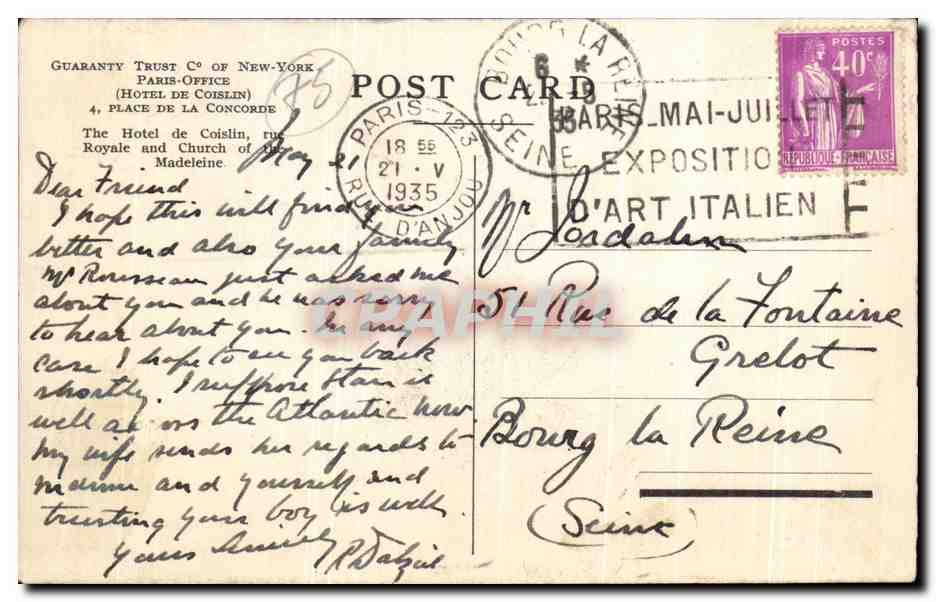 GUARANTY TRUST Cº OF NEW-YORK
PARIS-OFFICE
(HOTEL DE COISLIN)
4, PLACE DE LA CONCORDE
The Hotel de Coislin, rue
Royale and Church of the
Madeleine
75
POST CARD
PARIS-123
18 55
21 · V
1935
RUE D'ANJOU
BOURG LA REINE
6 *
35
SEINE
PARIS_MAI-JUILLET
EXPOSITIO
D'ART ITALIEN
POSTES
40c
REPUBLIQUE-FRANÇAISE
May 21
Dear Friend
I hope this will find you
better and also your family
Mr Rousseau just asked me
about you and he was sorry
to hear about you. In any
case I hope to see you back
shortly. I suppose Stan is
well across the Atlantic now
My wife sends her regards to
madame and yourself and
trusting your boy is well.
Yours
Mr
51 Rue de la Fontaine
Grelot
Bourg la Reine
(Seine)
CPAPHIL